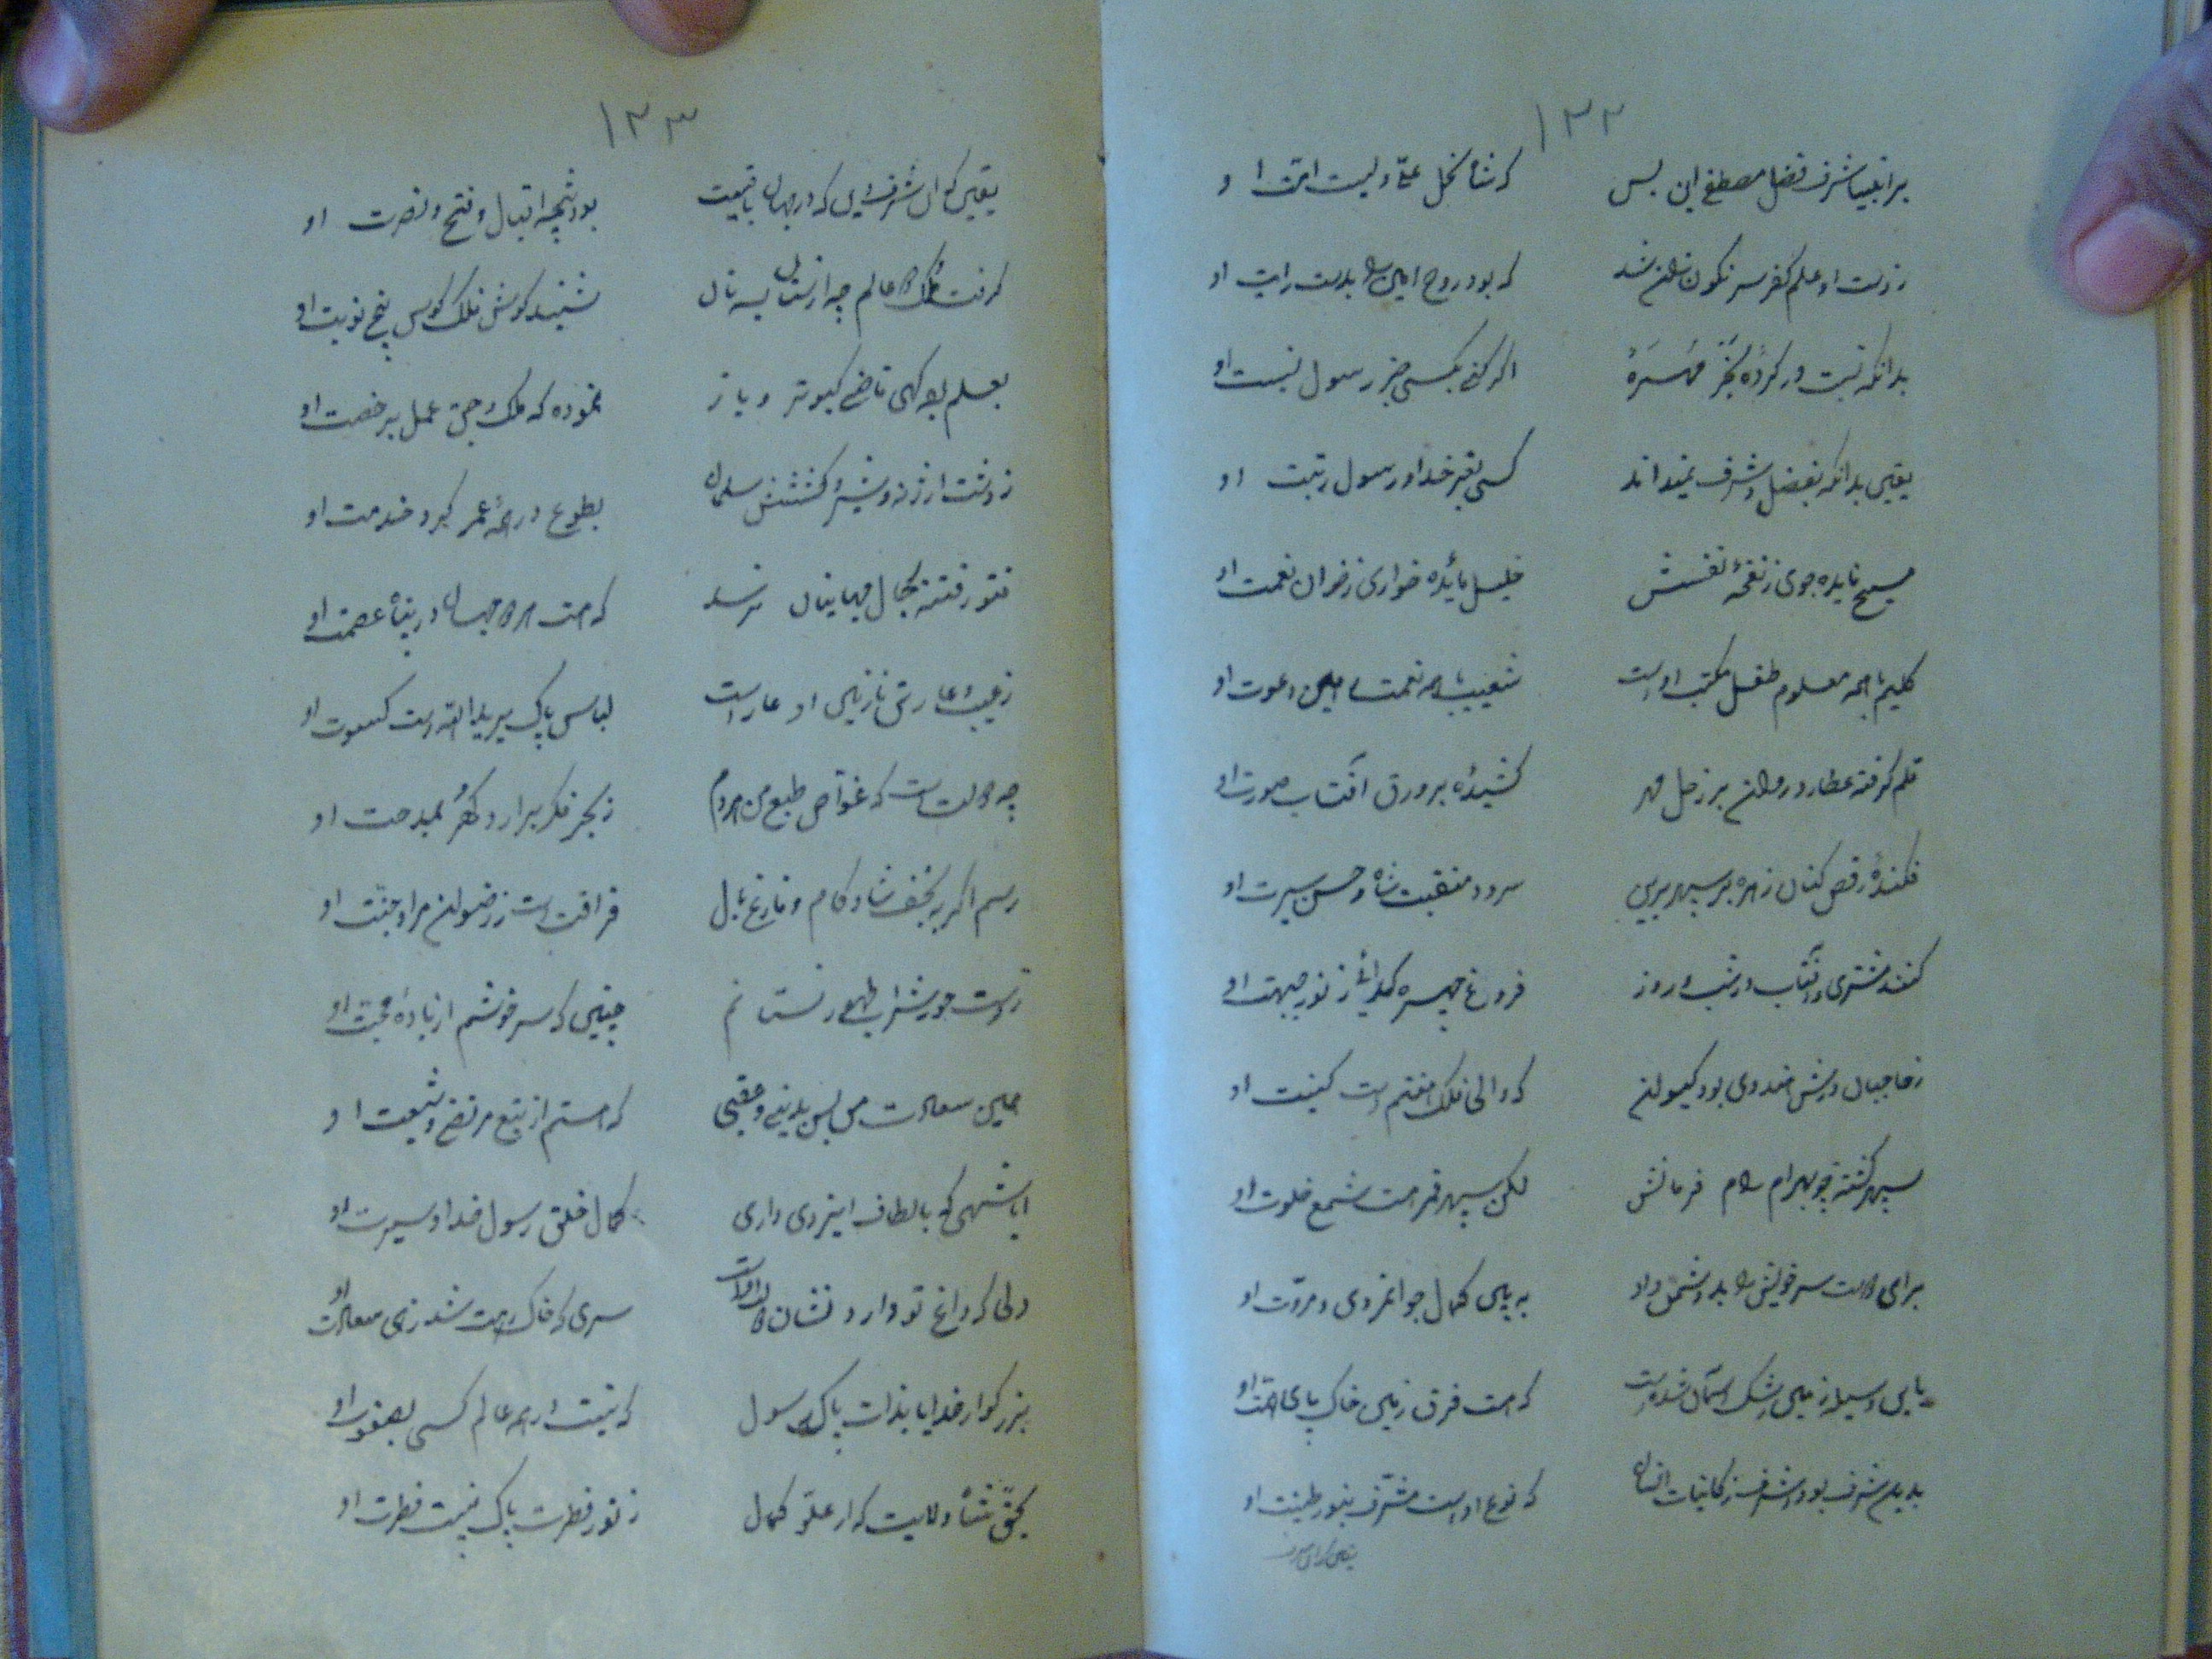 ۱۲۲
بر انبیا شرف فضل مصطفی این بس که شاه نخل علی ولیست امت او
ز دست او علم کفر سرنگون شد که بود روح امین را بدست رایت او
بدانکه نسبت در کرده بخر مهره اگر کنی بکسی جز رسول نسبت او
یقین بدانکه بفضل و شرف نمیداند کسی بغیر خدا و رسول رتبت او
مسیح فایده جوی ز نفحهٔ نفسش خلیل مائده خواری ز خوان نعمت او
کلیم با همه معلوم طفل مکتب اوست شعیب با همه نعمت امین دعوت او
قلم گرفته عطارد بر زحل مهر کشیده بر ورق آفتاب صورت او
فکنده رقص کنان زهره بر سپهر برین سرود منقبت شاه و حسن سیرت او
کنند مشتری و آفتاب در شب و روز فروغ چهره گدائی ز نور جبهت او
ز حاجبان درش هندوی بود کیوان که والی فلک هفتم است کنیت او
سپهر گشته چو بهرام رام فرمانش لکن سپهر و قمر هست شمع خلوت او
برای امت سر خویش را بدشمن داد به بین کمال جوانمردی و مروت او
باین وسیله زمین رشک آسمان شده است که هست فرق زمین خاک پای امت او
بدین شرف بود اشرف ز کائنات انسان که نوع اوست مشرف بنور طینت او
۱۲۳
یقین که آن شرف دین که در جهان باقیست بود نتیجه اقبال و فتح و نصرت او
گرفت ملک عالم چه از سنان لسان شنید گوش فلک کوس پنج نوبت او
بعلم بو کهی قاضی کبوتر و باز نموده که ملک و جن عمل برخصت او
ز دشت ارژنه و شیر کشتنش سلمان بطوع در همه عمر کرد خدمت او
فتور فتنه بحال جهانیان نرسد که هست اهل جهان در پناه عصمت او
ز عیب عاریتی نازنین او عار است لباس پاک ید الله است کسوت او
چه دولت است که غواص طبع من هردم ز بحر فکر برآرد گهر بمدحت او
رسم اگر به نجف شاد کام و فارغ بال فراقت است ز رضوان مرا و جنت او
ز دست حور شراب طهور نستانم چنین که سرخوشم از بادهٔ محبت او
همین سعادت من بس بدنیی و عقبی که هستم از تبع مرتضی و شیعت او
ایا شهی که بالطاف ایزدی داری کمال خلق رسول خدا و سیرت او
دلی که داغ تو دارد نشان سری که خاک رهت شد زهی سعادت او
بزرگوار خدایا بذات پاک رسول که نیست در همه عالم کسی بصفوت او
بحق شاه ولایت که از علو کمال ز نور فطرت پاک نبیست فطرت او